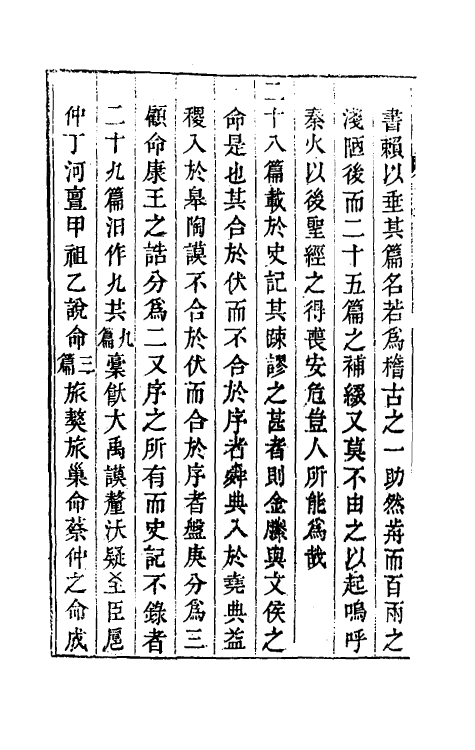 書賴以垂其篇名若爲稽古之一助然荐而百兩之
淺陋後而二十五篇之補綴又莫不由之以起嗚呼
秦火以後聖經之得喪安危豈人所能爲哉
二十八篇載於史記其疎謬之甚者則金縢與文侯之
命是也其合於伏而不合於序者舜典入於堯典益
稷入於皋陶謨不合於伏而合於序者盤庚分爲三
顧命康王之誥分爲二又序之所有而史記不錄者
二十九篇汨作九共九篇槀飫大禹謨釐沃疑至臣扈
仲丁河亶甲祖乙說命三篇旅獒旅巢命蔡仲之命成